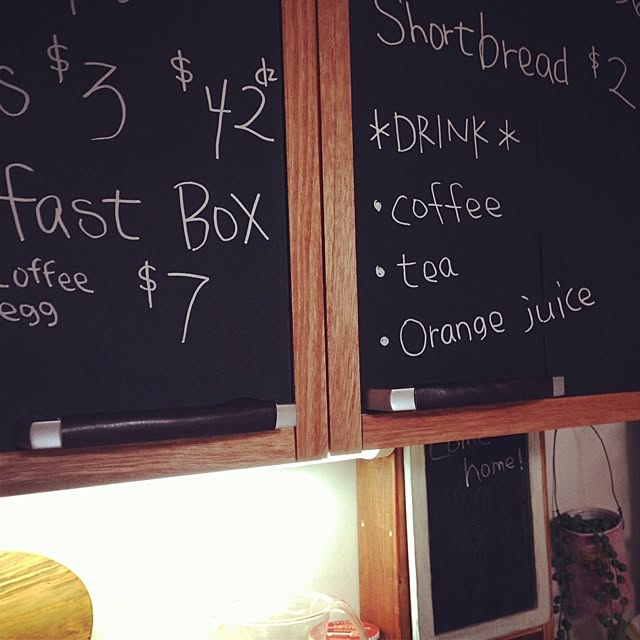 s $3 $42 dz
fast Box
coffee $7
egg
Shortbread $2
*DRINK*
• coffee
• tea
• Orange juice
come
home!